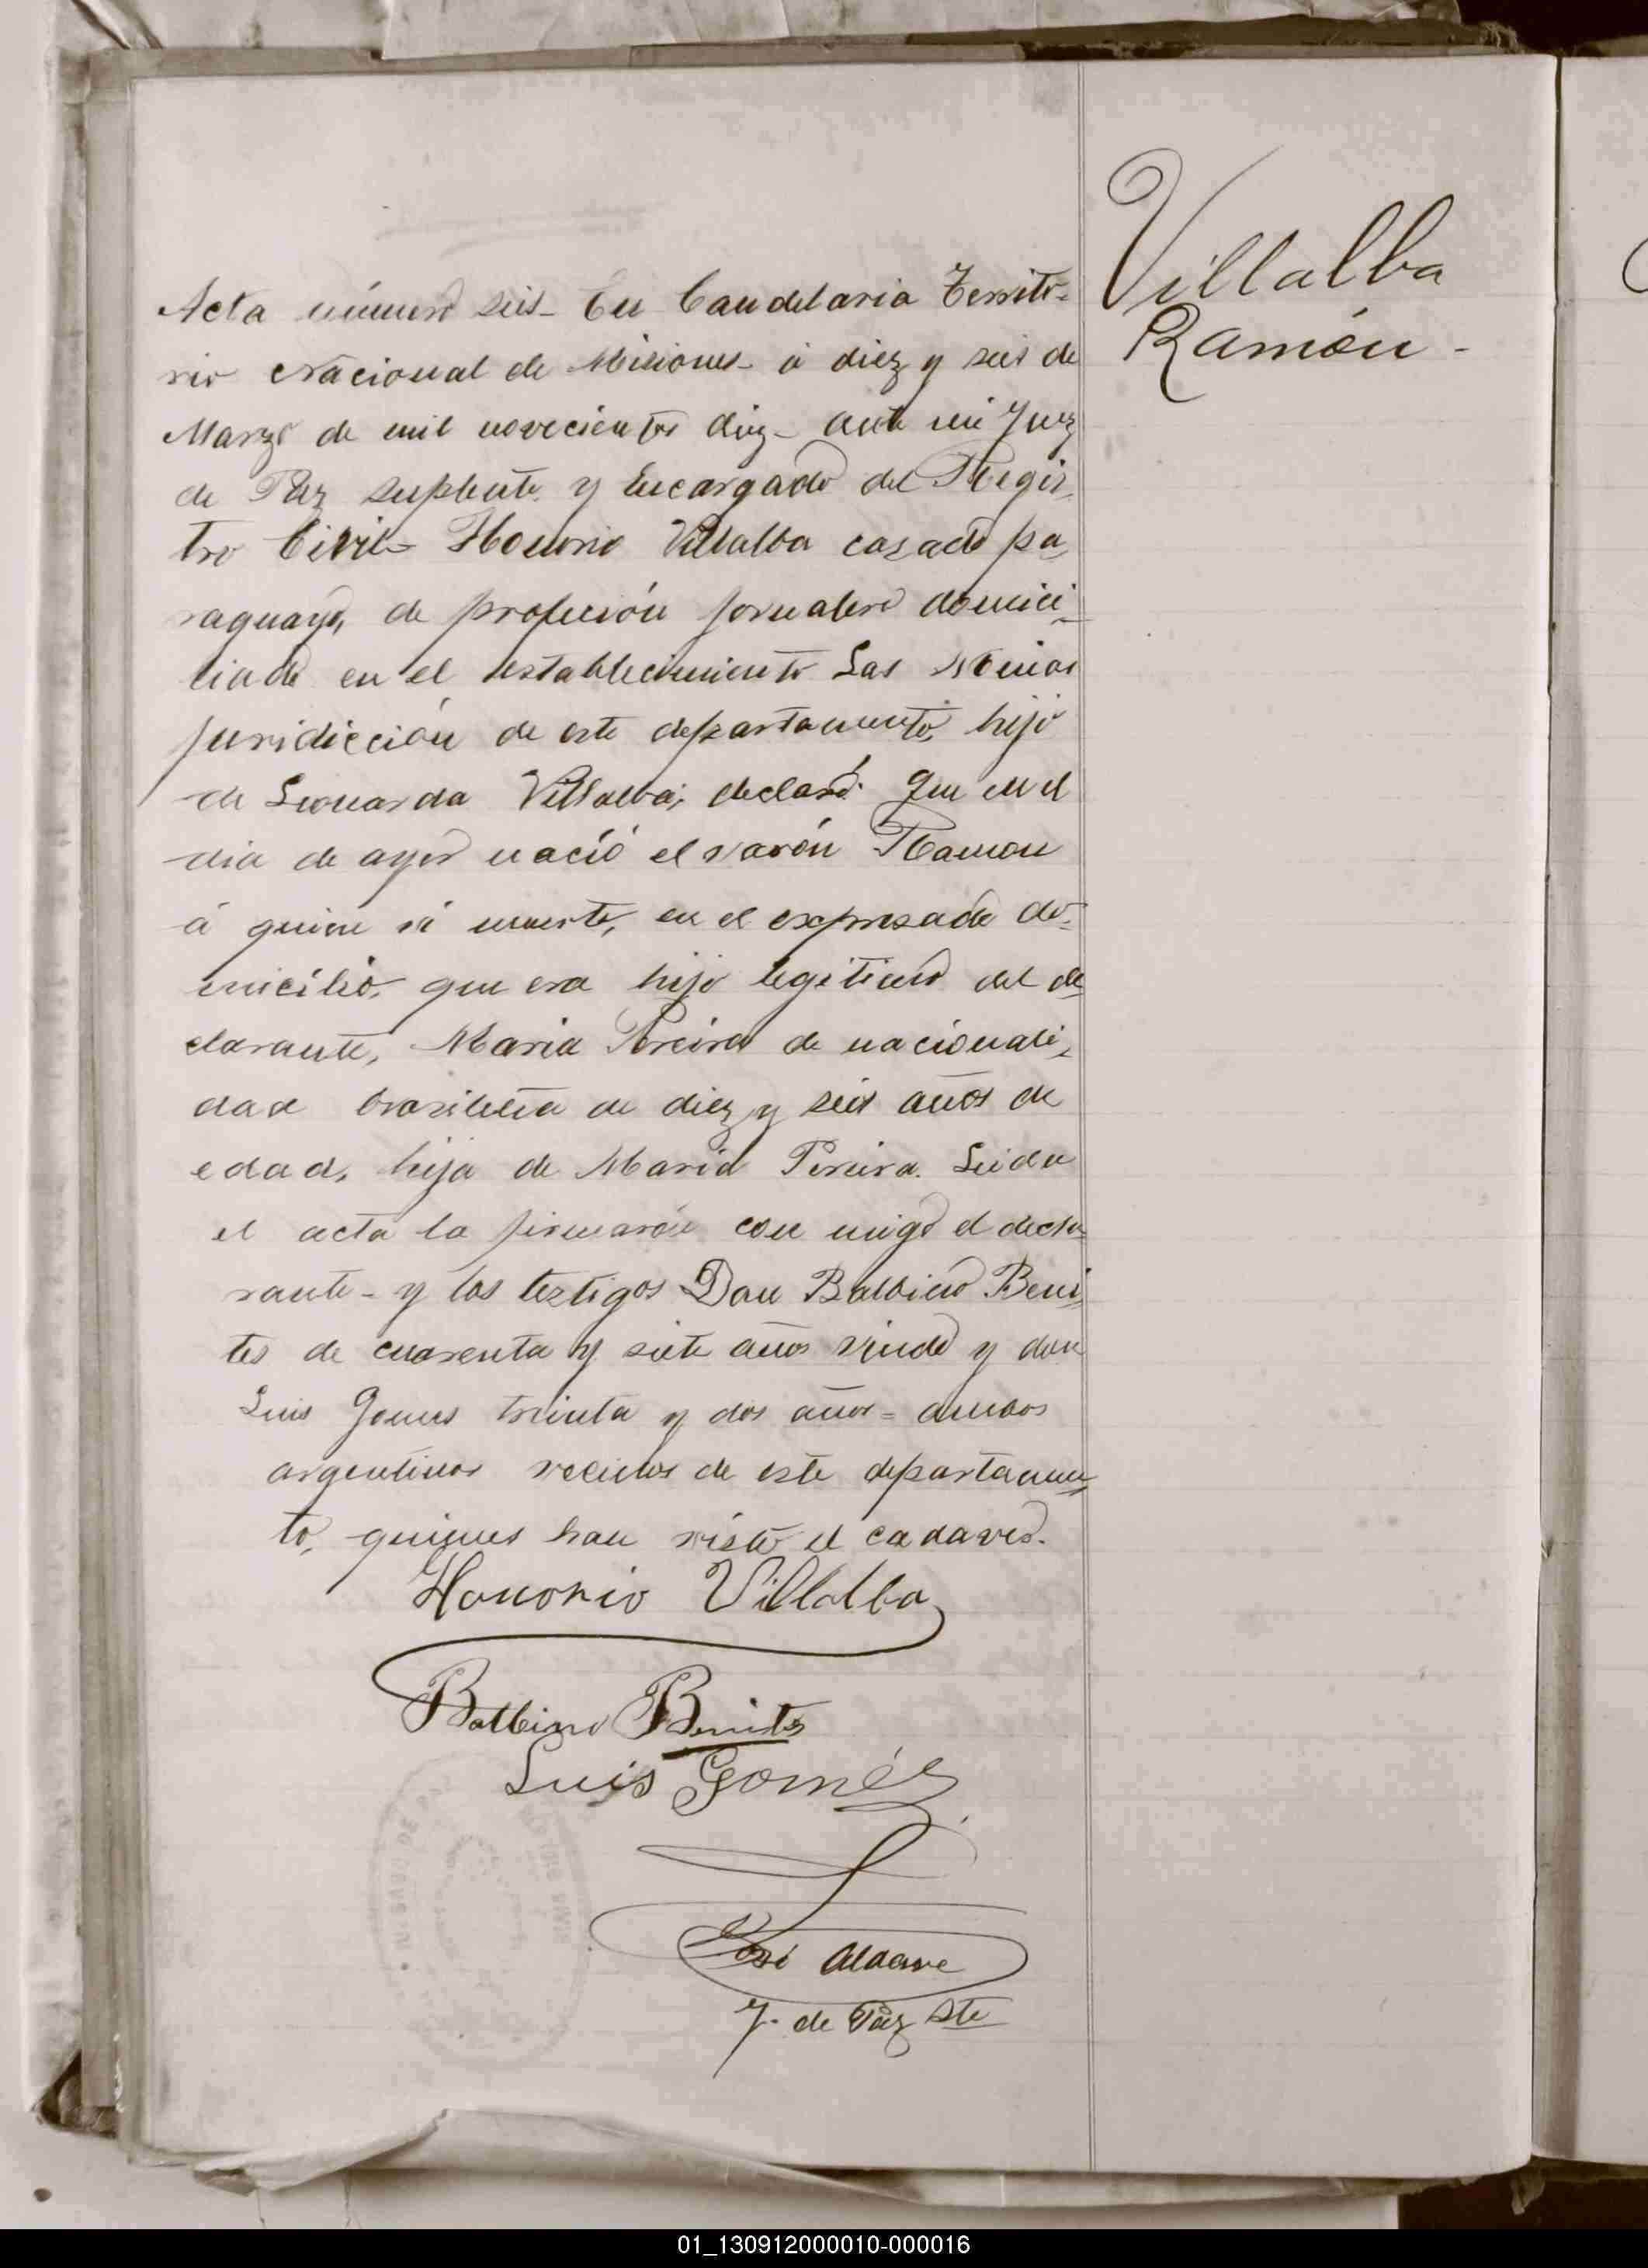 Villalba
Ramón -
Acta número seis - En Candelaria Territo-
rio Nacional de Misiones - á diez y seis de
Marzo de mil novecientos diez - ante mi Juez
de Paz suplente y Encargado del Regis-
tro Civil - Honorio Villalba casado pa-
raguayo, de profeción jornalero domici-
liado en el establecimiento Las
juridicción de este departamento, hijo
de Leonarda Villalva; declaró: Que en el
dia de ayer nació el varón Ramon
á quien vi muerto, en el expresado do-
micilio, que era hijo legitimo del de-
clarante, Maria Pereira de nacionali-
dad brasileña de diez y seis años de
edad, hija de Maria Pereira. Leida
el acta la firmarón con migo el decla-
rante - y los teztigos Don Balbino Beni-
tes de cuarenta y siete años viudo y don
Luis Gomes treinta y dos años = ambos
argentinos vecinos de este departamen-
to, quienes han visto el cadaver.
Honorio Villalba
Balbino Benites
Luis Goméz
José Aldave
J. de Paz Ste
JUZGADO DE PAZ
01_130912000010-000016